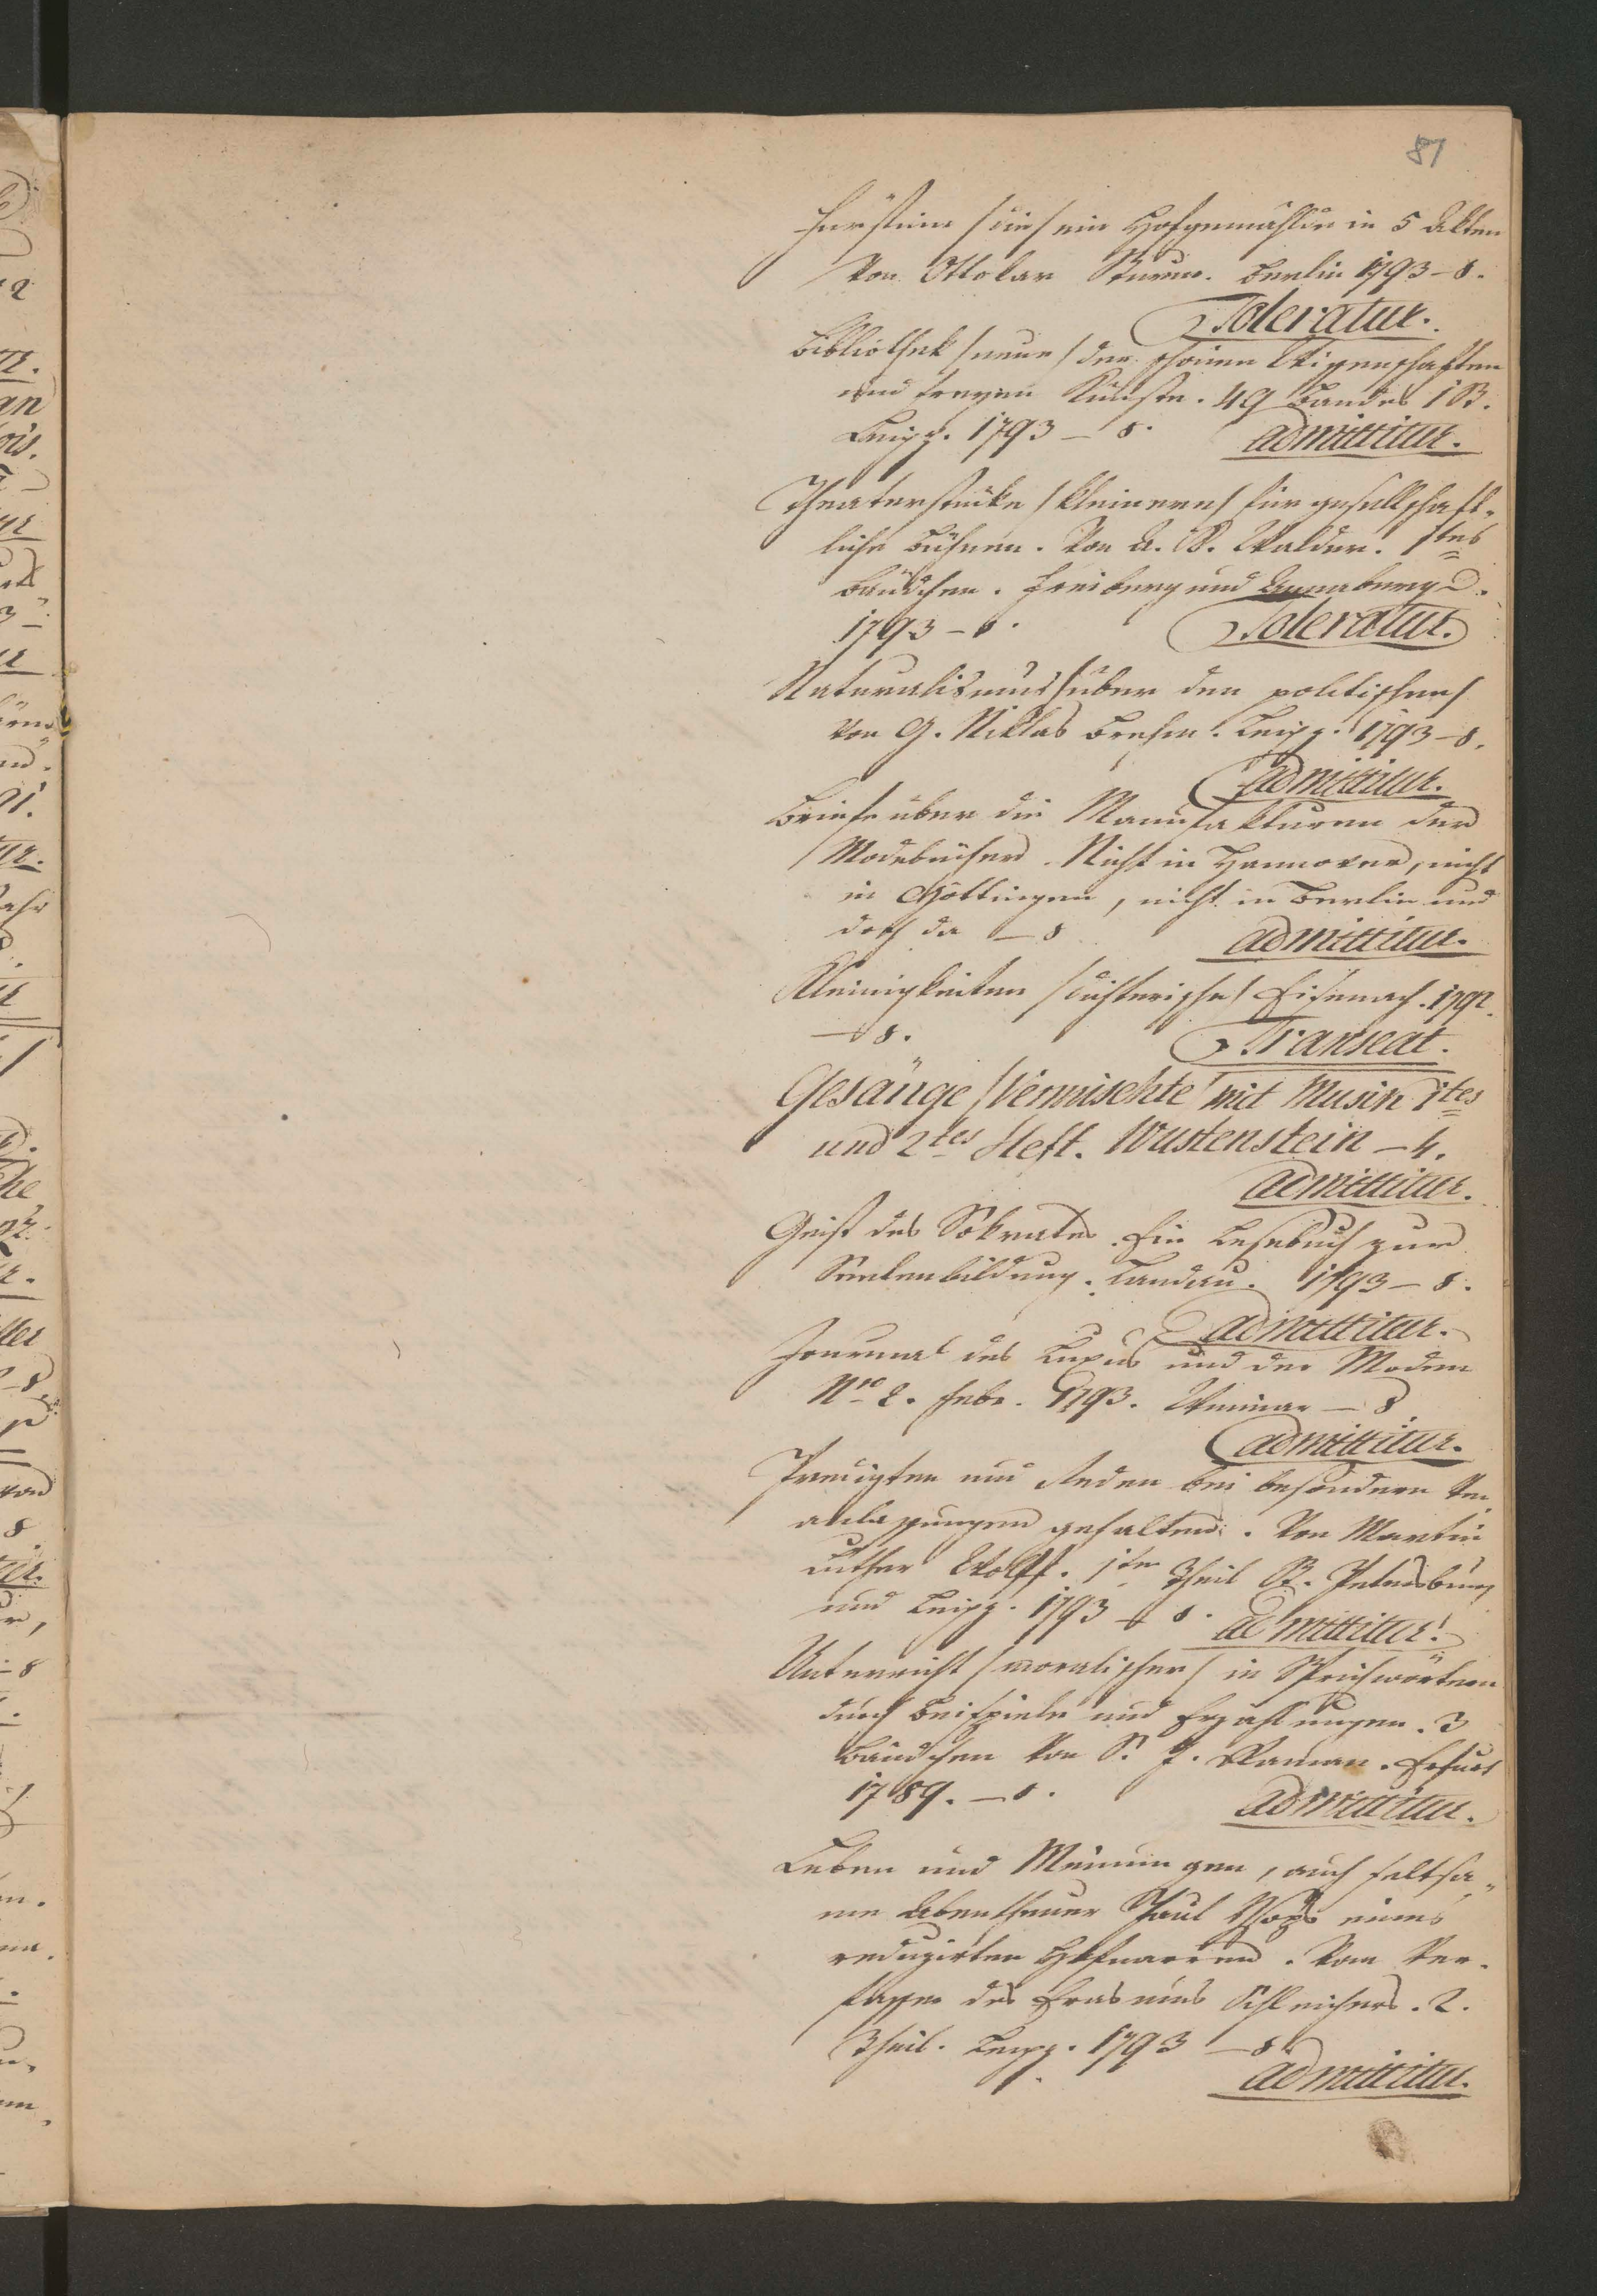 81
Fürstinn /die/ ein Hofgemählde in 5 Akten
Von Ottokar Sturm. Berlin 1793 – 8.
Toleratur.
Bibliothek /neue/ der schönen Wissenschaften
und freyen Künste. 49 Bandes 1 St.
Leipz. 1793 – 8. admittitur.
Theaterstücke /kleinere/ für gesellschaft-
liche Bühnen. Von A. B. Walder. 1tes
Bändchen. Freiberg und Annaberg.
1793 – 8. Toleratur.
Naturalismus /über den politischen/
von G. Niklas Brehm. Leipz. 1793 – 8.
admittitur.
Briefe über die Manufakturen der
Modebücher. Nicht in Hannover, nicht
in Göttingen, nicht in Berlin und
doch da – 8 admittitur.
Kleinigkeiten /dichterische/ Eisenach. 1792.
– 8. Transeat.
Gesänge /Vermischte/ mit Musik 1tes
und 2tes Heft. Wustenstein – 4.
admittitur.
Geist des Sokrates. Ein Lesebuch zur
Seelenbildung. Landau. 1793 – 8.
admittitur.
Journal des Luxus und der Moden
Nro 2. Febr. 1793. Weimar – 8
admittitur.
Predigten und Reden bei besondern Ver-
anlassungen gehalten. Von Martin
Luther Wolff. 1ter Theil St. Petersburg
und Leipz. 1793 – 8. admittitur.
Unterricht /moralischer/ in Sprichwörtern
durch Beispiele und Erzählungen. 3
Bändchen Von S. J. Raman. Erfurt
1789. – 8. admittitur.
Leben und Meinungen, auch seltsa-
me Abentheuer Paul Ysops eines
reduzirten Hofnarren. Vom Ver-
fasser des Erasmus Schleichers. 2.
Theil. Leipz. 1793 – 8.
admittitur.